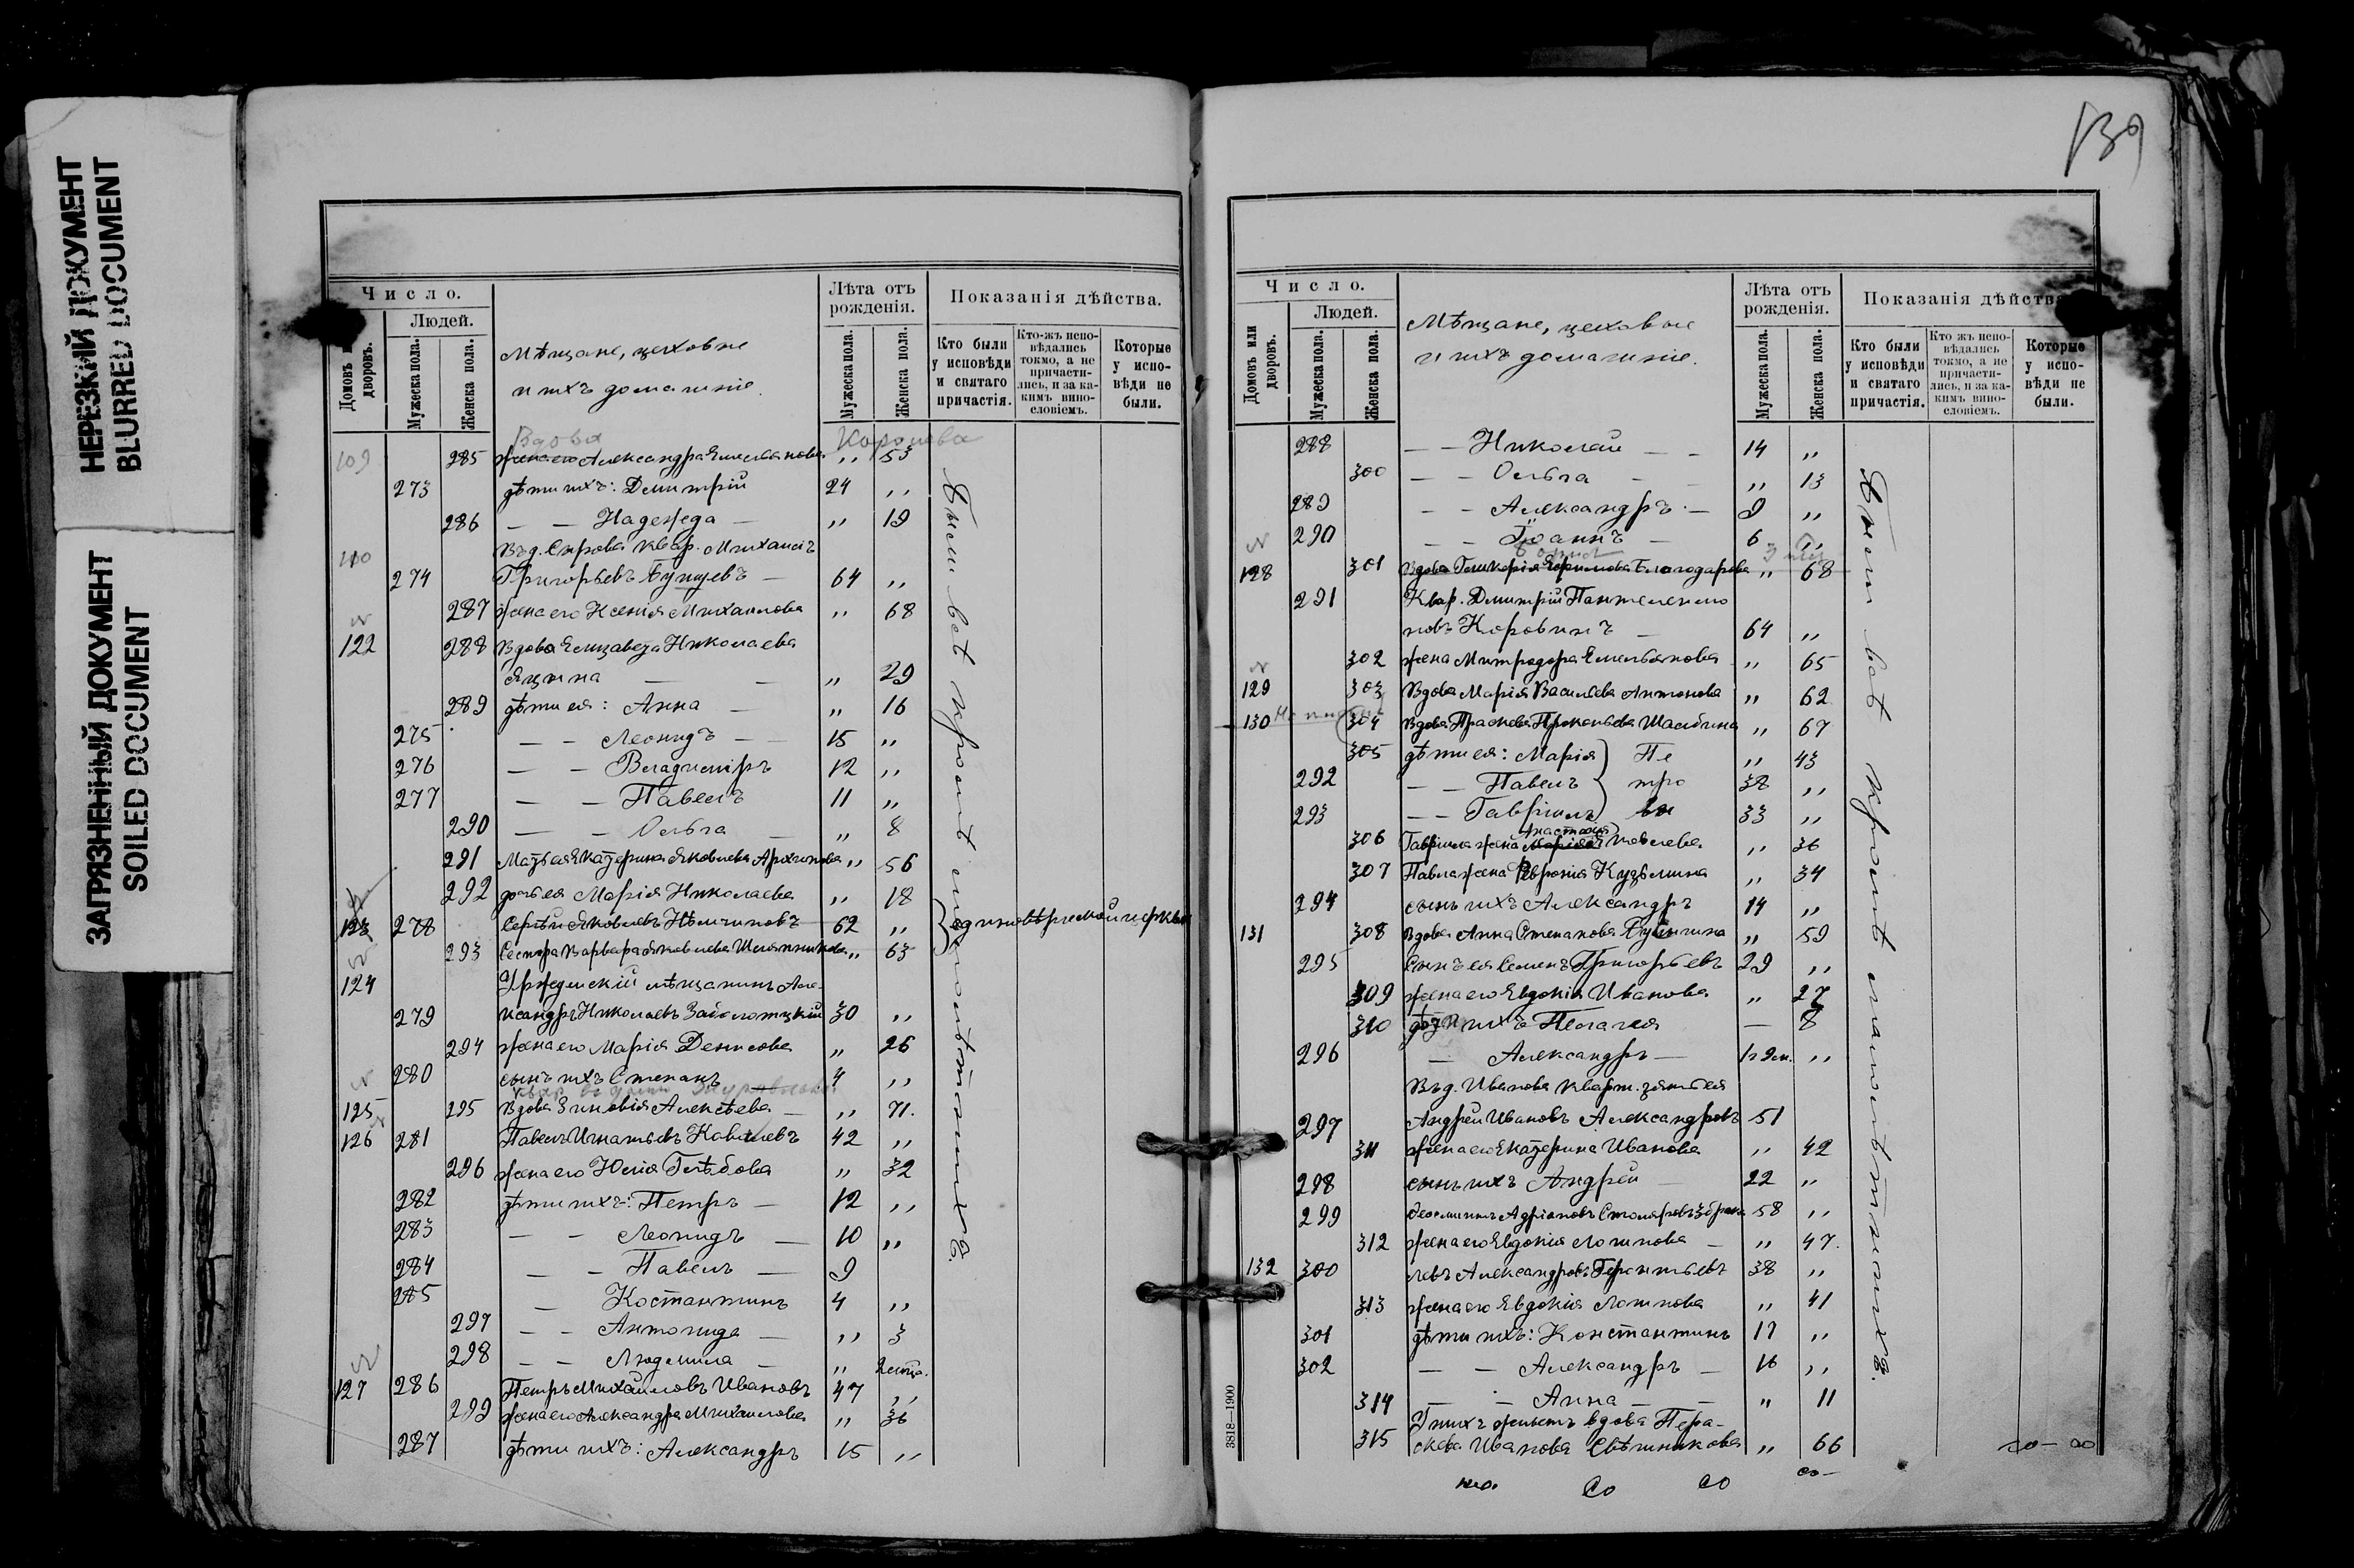 НЕРЕЗКИЙ ДОКУМЕНТ
BLURRED DOCUMENT
ЗАГРЯЗНЕННЫЙ ДОКУМЕНТ
SOILED DOCUMENT
Число.
Домовъ
дворовъ.
Людей.
Мужеска пола.
Женска пола.
Мѣщане, цеховые
и ихъ домашніе.
Лѣта отъ
рожденія.
Мужеска пола.
Женска пола.
Показанія дѣйства.
Кто были
у исповѣди
и святаго
причастія.
Кто-жъ испо-
вѣдались
токмо, а не
причасти-
лись, и за ка-
кимъ вино-
словіемъ.
Которые
у испо-
вѣди не
были.
Вдова
109 285 жена его Александра Емельянова „ 53
273 дѣти ихъ: Димитрій 24 „
286 — — Надежда — „ 19
110 Въ д. Сѣрова квар. Михаилъ
274 Григорьевъ — 64 „
287 жена его Ксенія Михаилова „ 68
122 288 Вдова Елизавета Николаева
Яцина — — „ 29
289 дѣти ея: Анна — „ 16
275 — — Леонидъ — — 15 „
276 — — Владиміръ 12 „
277 — — Павелъ 11 „
290 — — Ольга — „ 8
291 Мать ея Екатерина Яковлева Архипова „ 56
292 дочь ея Марія Николаева „ 18
123 278 Сергѣй Яковлевъ 62 „
единовѣрческой церкви
293 Сестра Варвара Яковлева Шляпникова „ 63
124 мѣщанинъ Але-
279 ксандръ Николаевъ Заболотцкій 30 „
294 жена его Марія Денисова „ 26
280 сынъ ихъ Степанъ 4 „
125 295 Вдова Зиновія Алексѣева — „ 71.
126 281 Павелъ Игнатьевъ Ковалевъ 42 „
296 жена его Юлія Глѣбова „ 32
282 дѣти ихъ: Петръ — 12 „
283 — — Леонидъ — 10 „
284 — — Павелъ — 9
285 — Костантинъ 4 „
297 — — Антонида — „ 3
298 — — Людмила — „ 2 мѣсц.
127 286 Петръ Михайловъ Ивановъ 47 „
299 жена его Александра Михаилова „ 36
287 дѣти ихъ: Александръ 15 „
Были всѣ кромѣ малолѣтнихъ.
139
Число.
Домовъ или
дворовъ.
Людей.
Мужеска пола.
Женска пола.
Мѣщане, цеховые
и ихъ домашніе.
Лѣта отъ
рожденія.
Мужеска пола.
Женска пола.
Показанія дѣйства
Кто были
у исповѣди
и святаго
причастія.
Кто жъ испо-
вѣдались
токмо, а не
причасти-
лись, и за ка-
кимъ вино-
словіемъ.
Которые
у испо-
вѣди не
были.
288 — — Николай — — 14 „
300 — — Ольга — „ 13
289 — — Александръ — 9 „
290 — — Іоаннъ — 6 „
128 301 Вдова Гликерія Ефимова Благодарова „ 68
291 Квар. Димитрій Пантелеимо
новъ Коровинъ — 64 „
302 жена Митродора Емельянова „ 65
129 303 Вдова Марія Васильева Антонова „ 62
130 304 Вдова Праскева Прокопьева „ 67
305 дѣти ея: Марія Пе „ 43
292 — — Павелъ тро 38 „
293 — — Гавріилъ вы 33 „
Анастасія
306 Гавріила жена Марія Яковлева „ 36
307 Павла жена Евфросія Кузьмина „ 34
294 сынъ ихъ Александръ 14 „
131 308 Вдова Анна Степанова „ 59
295 Сынъ ея Семенъ Григорьевъ 29 „
309 жена его Евдокія Иванова „ 27
310 дѣти ихъ Пелагея — 8
296 — Александръ —
Въ д. Иванова кварт. зять ея
297 Андрей Ивановъ Александровъ 51
311 жена его Екатерина Иванова „ 42
298 сынъ ихъ Андрей — 22 „
299 Адріановъ Столяровъ 58 „
312 жена его Евдокія Логинова — „ 47.
132 300 Левъ Александровъ Геронтьевъ 38 „
313 жена его Евдокія Логинова „ 41
301 дѣти ихъ: Константинъ 17 „
302 — — Александръ — 16 „
314 — — Анна — — „ 11
У нихъ живетъ вдова Пера-
315 скева Иванова Свѣшникова „ 66
Были всѣ кромѣ малолѣтнихъ.
3818—1900